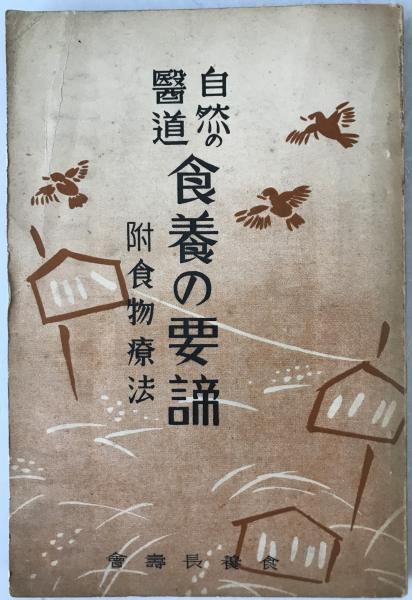 自然の
醫道
食養の要諦
附食物療法
食養長壽會